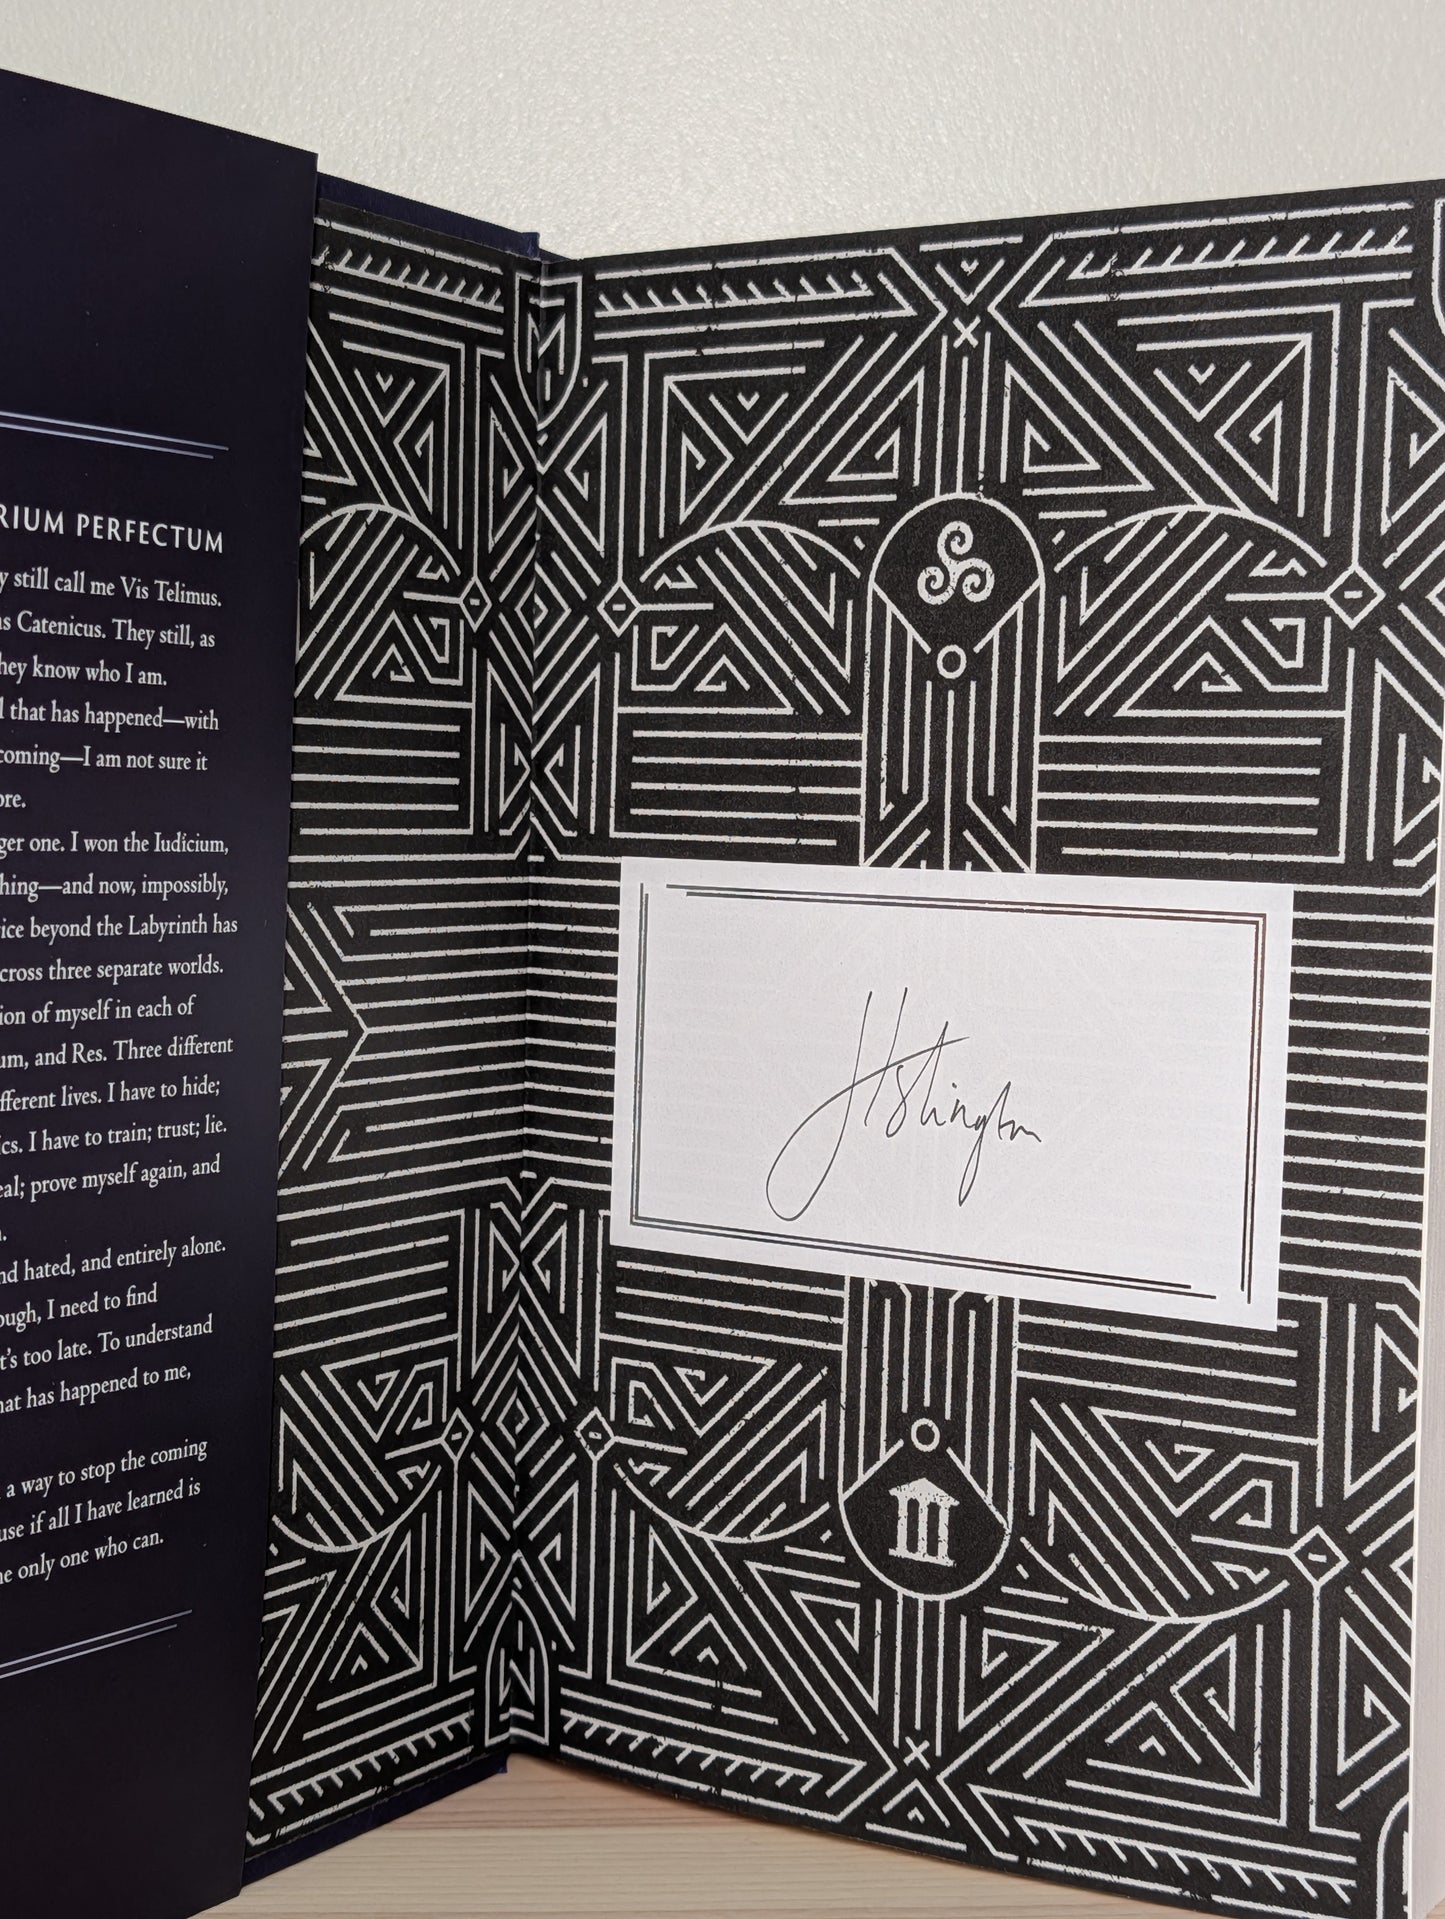 RIUM PERFECTUM
y still call me Vis Telimus.
as Catenicus. They still, as
hey know who I am.
l that has happened—with
coming—I am not sure it
ore.
ger one. I won the Iudicium,
hing—and now, impossibly,
ice beyond the Labyrinth has
cross three separate worlds.
ion of myself in each of
um, and Res. Three different
fferent lives. I have to hide;
ics. I have to train; trust; lie.
eal; prove myself again, and
nd hated, and entirely alone.
ough, I need to find
t's too late. To understand
hat has happened to me,
a way to stop the coming
use if all I have learned is
he only one who can.
J Islington